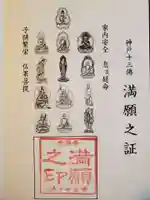 神戸十三佛
満願之証
家内安全 息災延命
子孫繁栄 仏果菩提
満願
之印